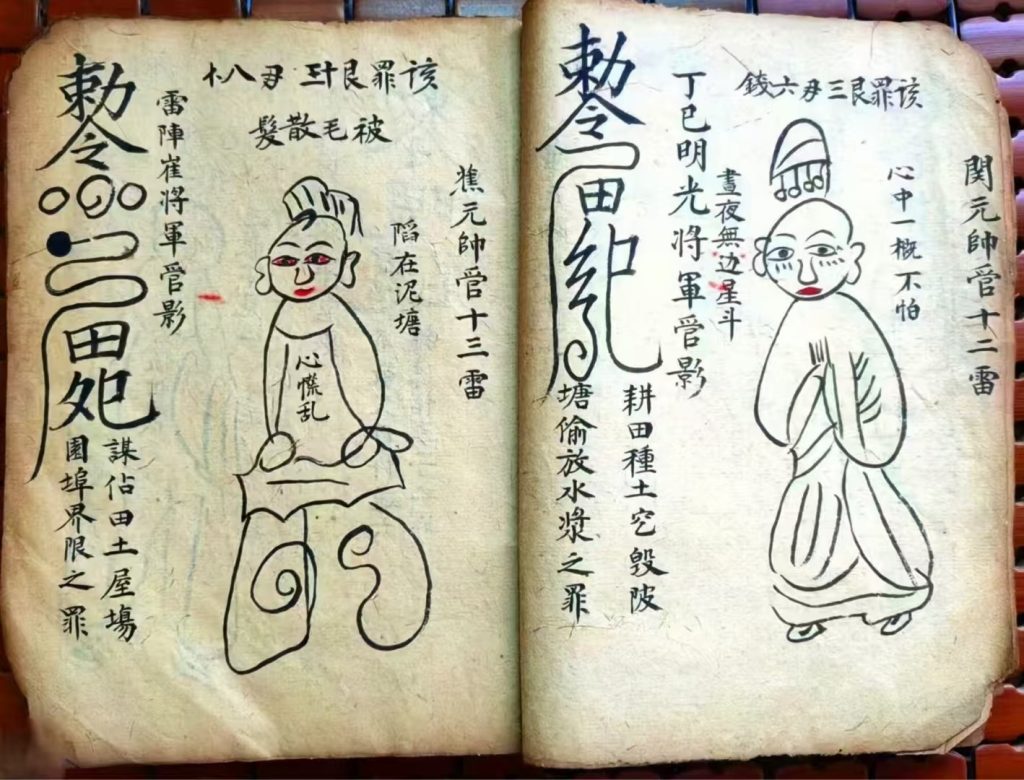 该罪艮三刄六錢
関元帥菅十二雷
心中一概不怕
晝夜無边星斗
丁巳明光將軍菅影
耕田種土穵毀陂
塘偷放水漿之罪
勅令
田
该罪艮十三刄八
被毛散髮
元帥菅十三雷
陷在泥塘
心慌乱
雷陣崔將軍菅影
謀佔田土屋場
園埠界限之罪
勅令
田